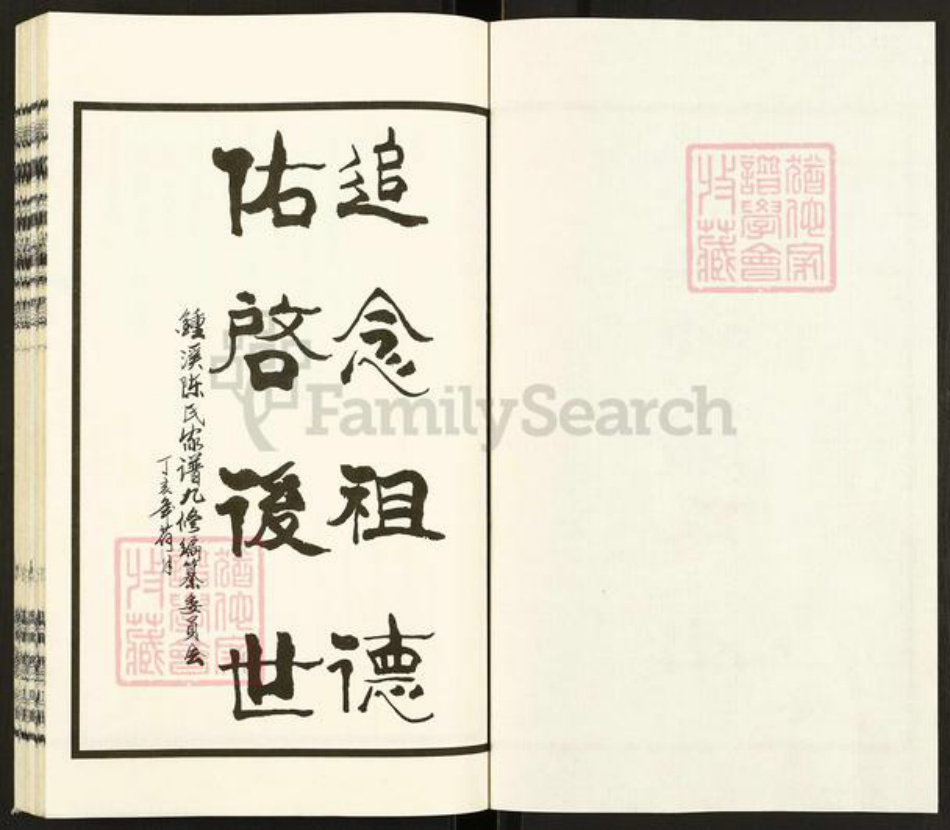 追念祖德
佑啓後世
鍾溪陈氏家谱九修编纂委员会
丁亥年荷月
猶他家
譜學會
特藏
猶他家
譜學會
特藏
FamilySearch